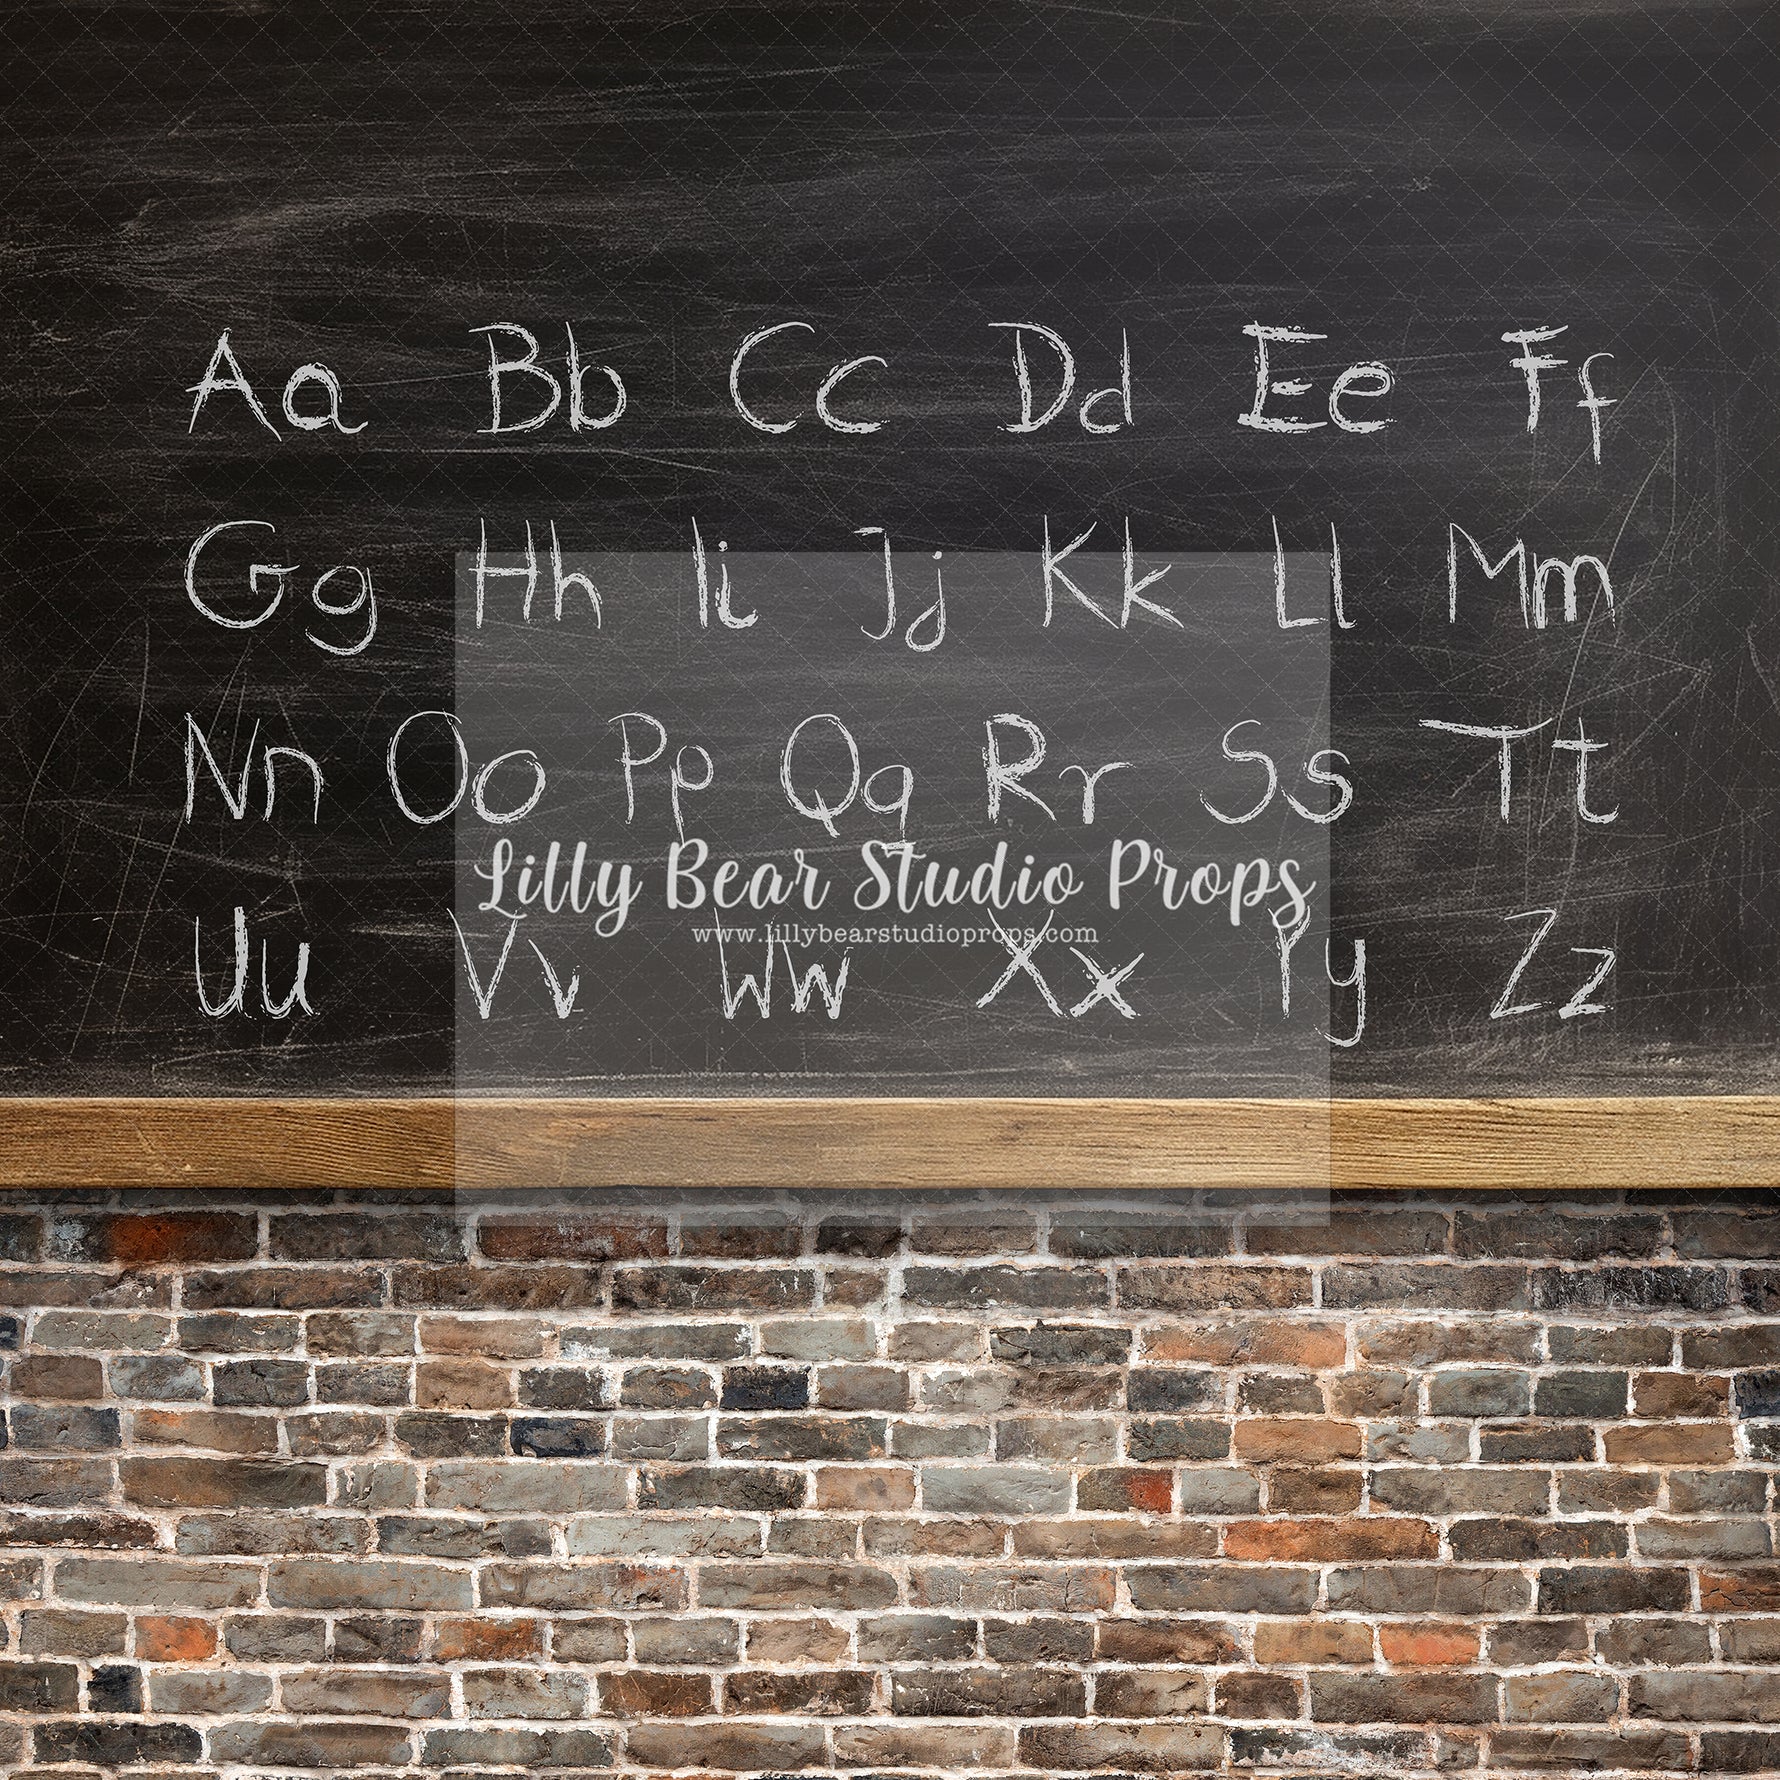 Aa Bb Cc Dd Ee Ff
Gg Hh Ii Jj Kk Ll Mm
Nn Oo Pp Qq Rr Ss Tt
Lilly Bear Studio Props
www.lillybearstudioprops.com
Uu Vv Ww Xx Yy Zz